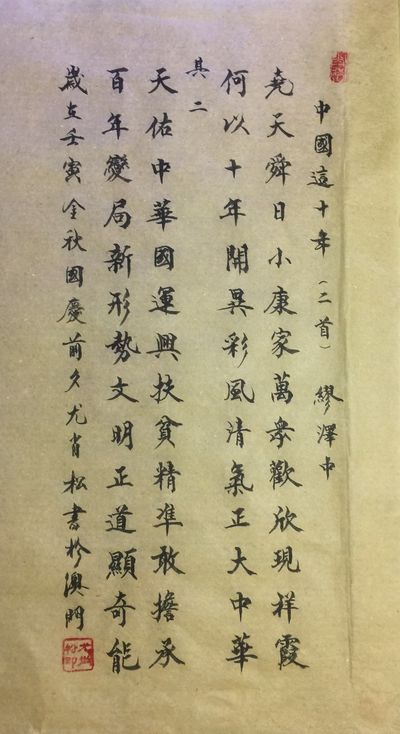 中國這十年（二首）繆澤中
堯天舜日小康家萬眾歡欣現祥霞
何以十年開異彩風清氣正大中華
其二
天佑中華國運興扶貧精準敢擔承
百年變局新形勢文明正道顯奇能
歲在壬寅金秋國慶前夕尤肖松書於澳門